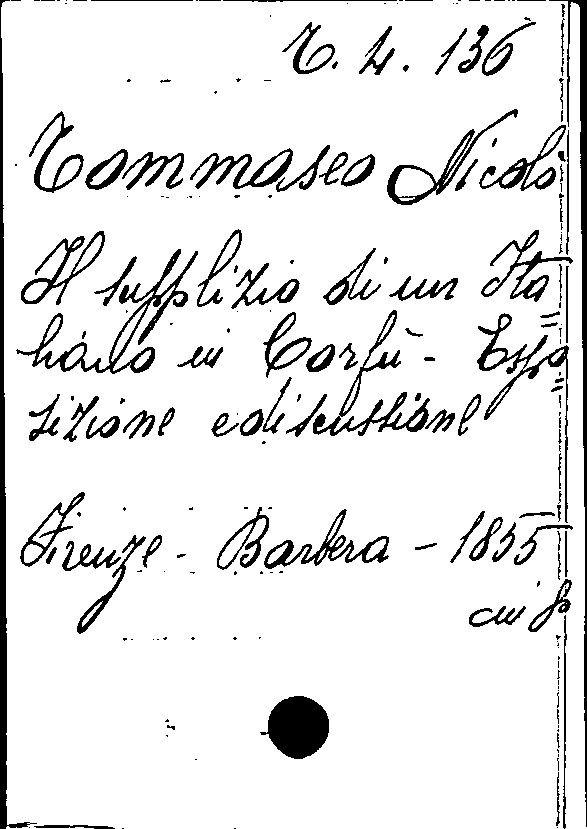 T. 4. 136
Tommaseo Nicolò
Il supplizio di un Ita=
liano in Corfù - Espo=
sizione e discussione
Firenze - Barbera - 1855
in f.